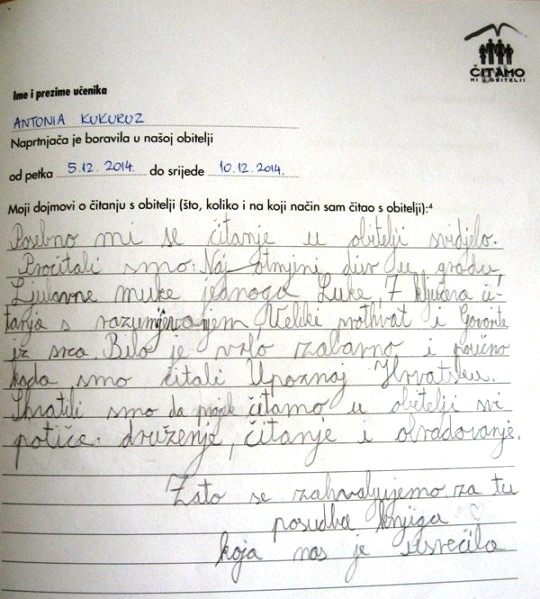 ČITAMO
MI U OBITELJI
Ime i prezime učenika
ANTONIA KUKURUZ
Naprtnjača je boravila u našoj obitelji
od petka 5.12.2014. do srijede 10.12.2014.
Moji dojmovi o čitanju s obitelji (što, koliko i na koji način sam čitao s obitelji):⁴
Posebno mi se čitanje u obitelji svidjelo.
Pročitali smo: Naj otmjeni div u gradu,
Ljubavne muke jednoga Luke, 7 ključeva či-
tanja s razumjevanjem, Veliki pothvat i Govorite
iz srca. Bilo je vrlo zabavno i poučno
kada smo čitali Upoznaj Hrvatsku.
Shvatili smo da projek čitamo u obitelji svi
potiče druženje, čitanje i obradovanje.
Zato se zahvaljujemo za tu
posudbu knjiga
koja nas je usrećila